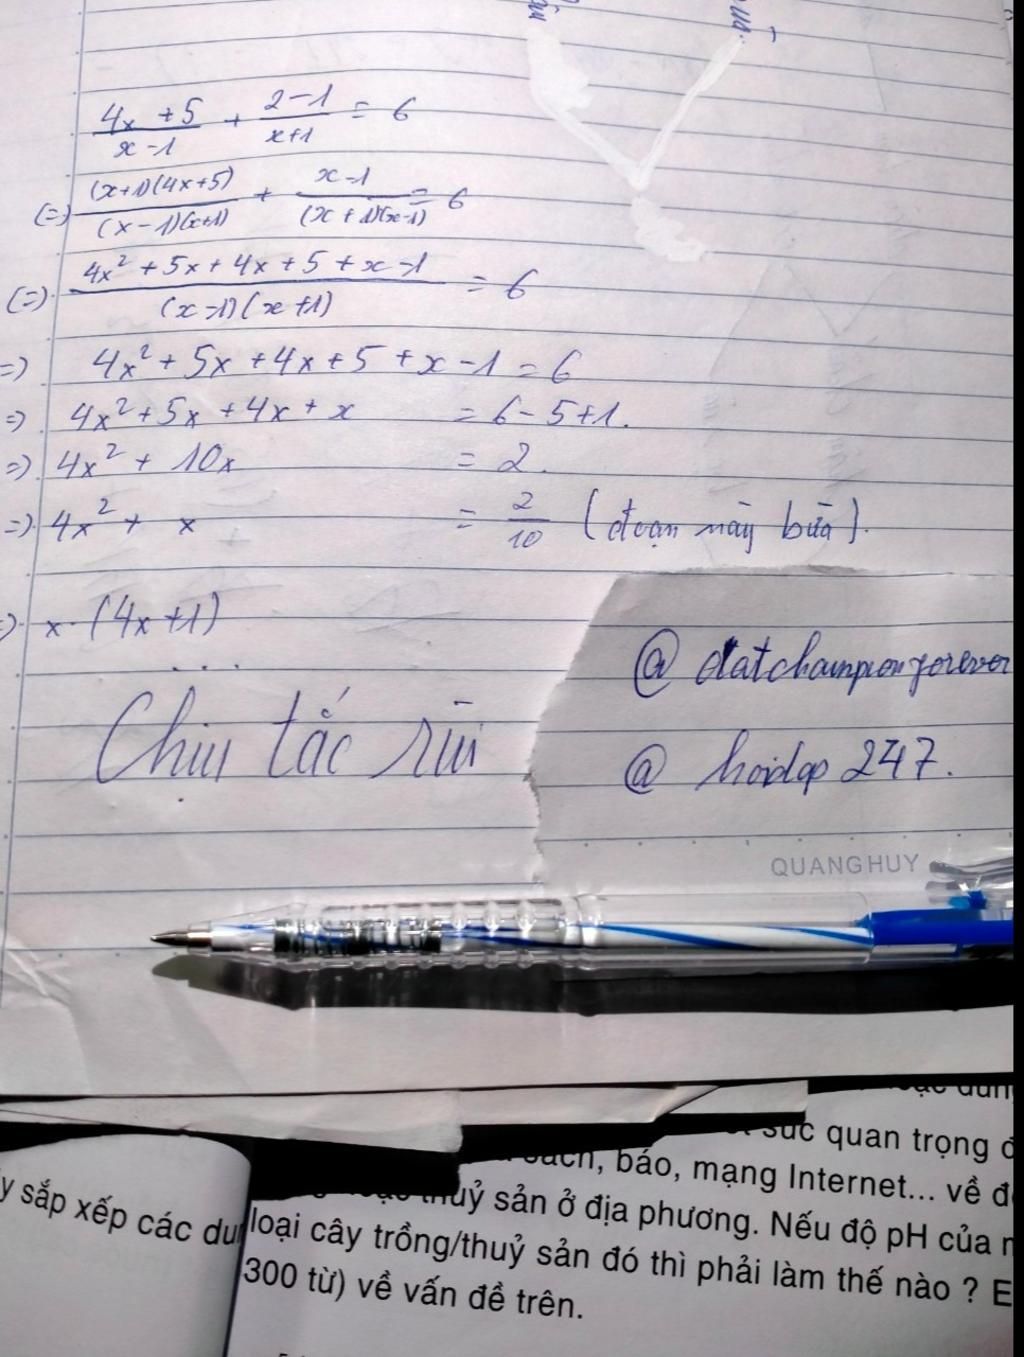 4x + 5 / x - 1 + 2 - 1 / x + 1 = 6
(=) (x+1)(4x+5) / (x-1)(x+1) + x-1 / (x+1)(x-1) = 6
(=) 4x² + 5x + 4x + 5 + x - 1 / (x-1)(x+1) = 6
=) 4x² + 5x + 4x + 5 + x - 1 = 6
=) 4x² + 5x + 4x + x = 6 - 5 + 1.
=) 4x² + 10x = 2.
=) 4x² + x = 2/10 (đoạn này bừa).
=) x. (4x+1)
...
Chịu tắc rùi
@ datchampionforever
@ hoidap 247.
QUANGHUY
suc quan trọng
sách, báo, mạng Internet... về
thuỷ sản ở địa phương. Nếu độ pH của
loại cây trồng/thuỷ sản đó thì phải làm thế nào ? E
300 từ) về vấn đề trên.
y sắp xếp các